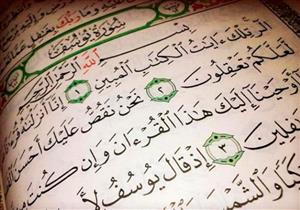 سُورَةُ يُوسُفَ
بِسْمِ اللَّهِ الرَّحْمَٰنِ الرَّحِيمِ
الٓر ۚ تِلْكَ ءَايَٰتُ الْكِتَٰبِ الْمُبِينِ ١ إِنَّآ أَنزَلْ
لَّعَلَّكُمْ تَعْقِلُونَ ٢ نَحْنُ نَقُصُّ عَلَيْكَ أَحْسَنَ الْ
أَوْحَيْنَآ إِلَيْكَ هَٰذَا الْقُرْءَانَ وَإِن كُنتَ مِن
غَٰفِلِينَ ٣ إِذْ قَالَ يُوسُفُ لِأَ
كَبًا وَالشَّمْسَ